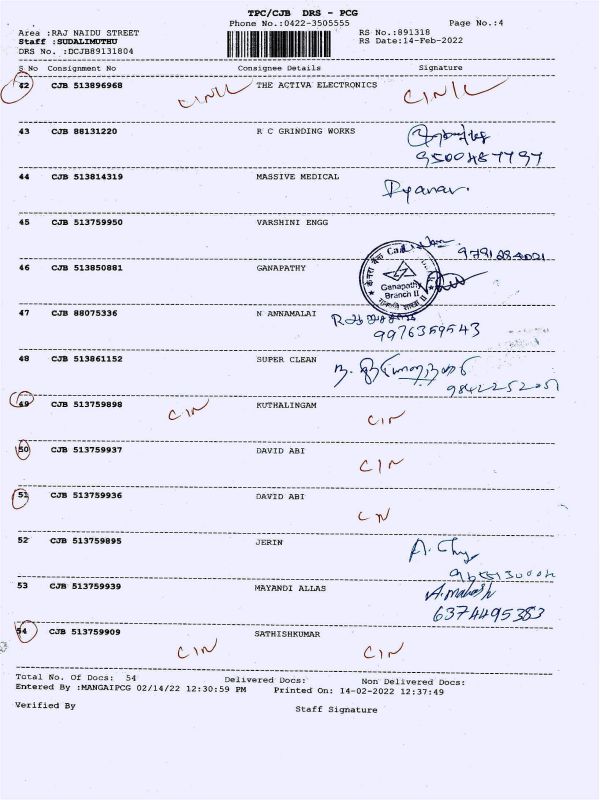 TPC/CJB DRS - PCG
Phone No.:0422-3505555 Page No.:4
Area :RAJ NAIDU STREET RS No.:891318
Staff :SUDALIMUTHU RS Date:14-Feb-2022
DRS No. :DCJB89131804
S No Consignment No Consignee Details Signature
42 CJB 513896968 THE ACTIVA ELECTRONICS
43 CJB 88131220 R C GRINDING WORKS
9500487797
44 CJB 513814319 MASSIVE MEDICAL
45 CJB 513759950 VARSHINI ENGG
46 CJB 513850881 GANAPATHY
Ganapathy
Branch II
47 CJB 88075336 N ANNAMALAI
9976359543
48 CJB 513861152 SUPER CLEAN
9842252051
49 CJB 513759898 CIN KUTHALINGAM CIN
50 CJB 513759937 DAVID ABI CIN
51 CJB 513759936 DAVID ABI
52 CJB 513759895 JERIN
53 CJB 513759939 MAYANDI ALLAS
6374495383
54 CJB 513759909 CIN SATHISHKUMAR CIN
Total No. Of Docs: 54 Delivered Docs: Non Delivered Docs:
Entered By :MANGAIPCG 02/14/22 12:30:59 PM Printed On: 14-02-2022 12:37:49
Verified By Staff Signature